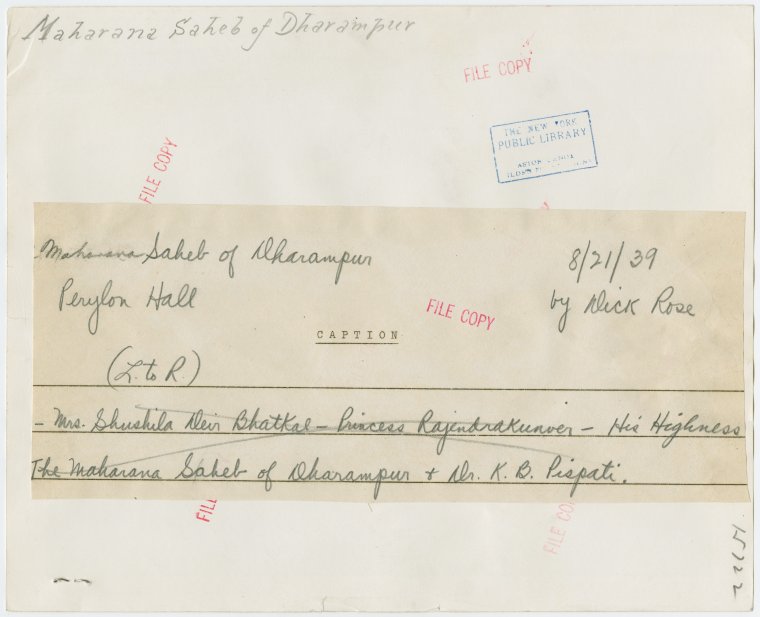 Maharana Saheb of Dharampur
FILE COPY
THE NEW YORK
PUBLIC LIBRARY
ASTOR LENOX
FILE COPY
Maharana Saheb of Dharampur
8/21/39
Perylon Hall
by Dick Rose
FILE COPY
CAPTION
(L. to R.)
- Mrs. Shushila Devi Bhatkal - Princess Rajendrakunver - His Highness
The Maharana Saheb of Dharampur & Dr. K. B. Pispati.
FIL
FILE CO